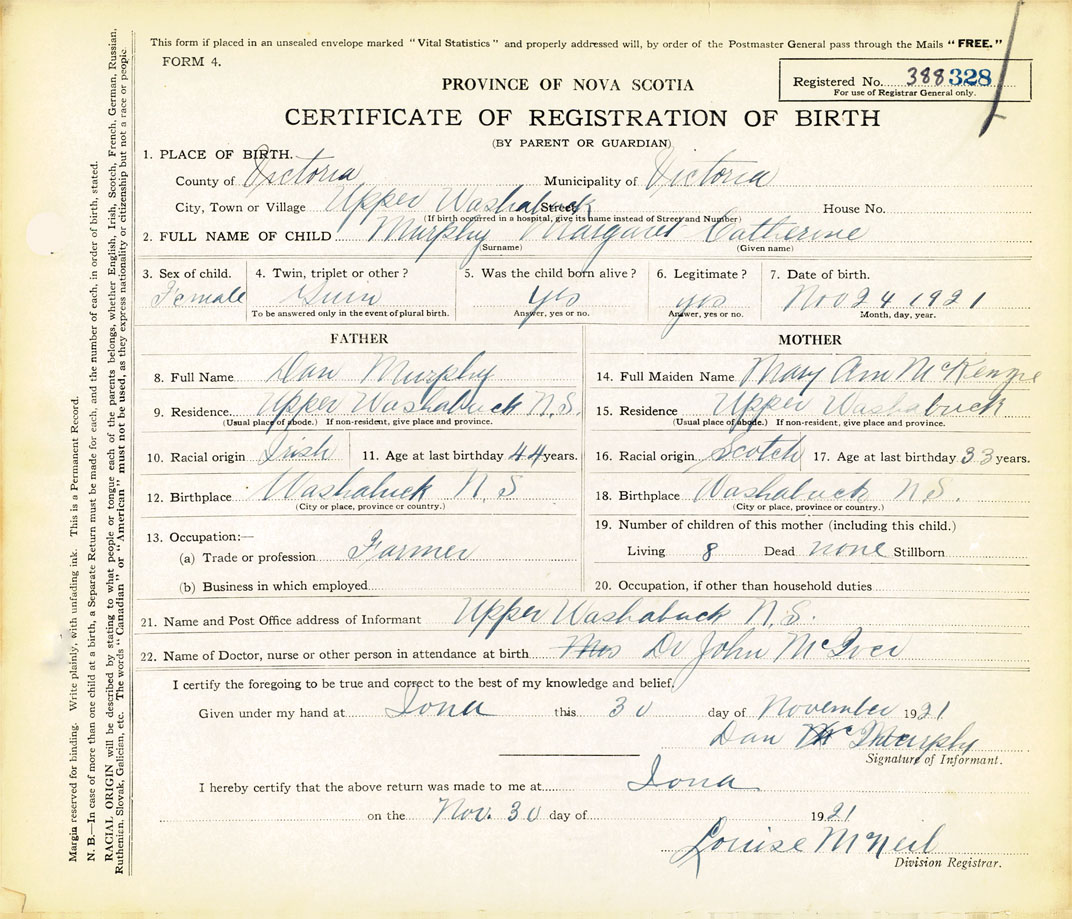 This form if placed in an unsealed envelope marked "Vital Statistics" and properly addressed will, by order of the Postmaster General pass through the Mails "FREE."
FORM 4.
Registered No. 388 328
For use of Registrar General only.
PROVINCE OF NOVA SCOTIA
CERTIFICATE OF REGISTRATION OF BIRTH
(BY PARENT OR GUARDIAN)
1. PLACE OF BIRTH.
County of Victoria Municipality of Victoria
City, Town or Village Upper Washabuck Street House No.
(If birth occurred in a hospital, give its name instead of Street and Number)
2. FULL NAME OF CHILD Murphy Margaret Catherine
(Surname) (Given name)
3. Sex of child. 4. Twin, triplet or other? 5. Was the child born alive? 6. Legitimate? 7. Date of birth.
Female yes yes Nov 24 1921
To be answered only in the event of plural birth. Answer, yes or no. Answer, yes or no. Month, day, year.
FATHER MOTHER
8. Full Name Dan Murphy 14. Full Maiden Name Mary Ann McKenzie
9. Residence. Upper Washabuck N.S. 15. Residence Upper Washabuck
(Usual place of abode.) If non-resident, give place and province. (Usual place of abode.) If non-resident, give place and province.
10. Racial origin Irish 11. Age at last birthday 44 years. 16. Racial origin Scotch 17. Age at last birthday 33 years.
12. Birthplace Washabuck N.S 18. Birthplace Washabuck N.S.
(City or place, province or country.) (City or place, province or country.)
13. Occupation:— 19. Number of children of this mother (including this child.)
(a) Trade or profession Farmer Living 8 Dead none Stillborn
(b) Business in which employed 20. Occupation, if other than household duties
21. Name and Post Office address of Informant Upper Washabuck N.S.
22. Name of Doctor, nurse or other person in attendance at birth Mrs Dr John McIver
I certify the foregoing to be true and correct to the best of my knowledge and belief,
Given under my hand at Iona this 30 day of November 1921
Dan Murphy
Signature of Informant.
I hereby certify that the above return was made to me at Iona
on the Nov. 30 day of 1921
Louise McNeil
Division Registrar.
Margin reserved for binding. Write plainly, with unfading ink. This is a Permanent Record.
N. B.—In case of more than one child at a birth, a Separate Return must be made for each, and the number of each, in order of birth, stated.
RACIAL ORIGIN will be described by stating to what people or tongue each of the parents belongs, whether English, Irish, Scotch, French, German, Russian,
Ruthenian, Slovak, Galician, etc. The words "Canadian" or "American" must not be used, as they express nationality or citizenship but not a race or people.